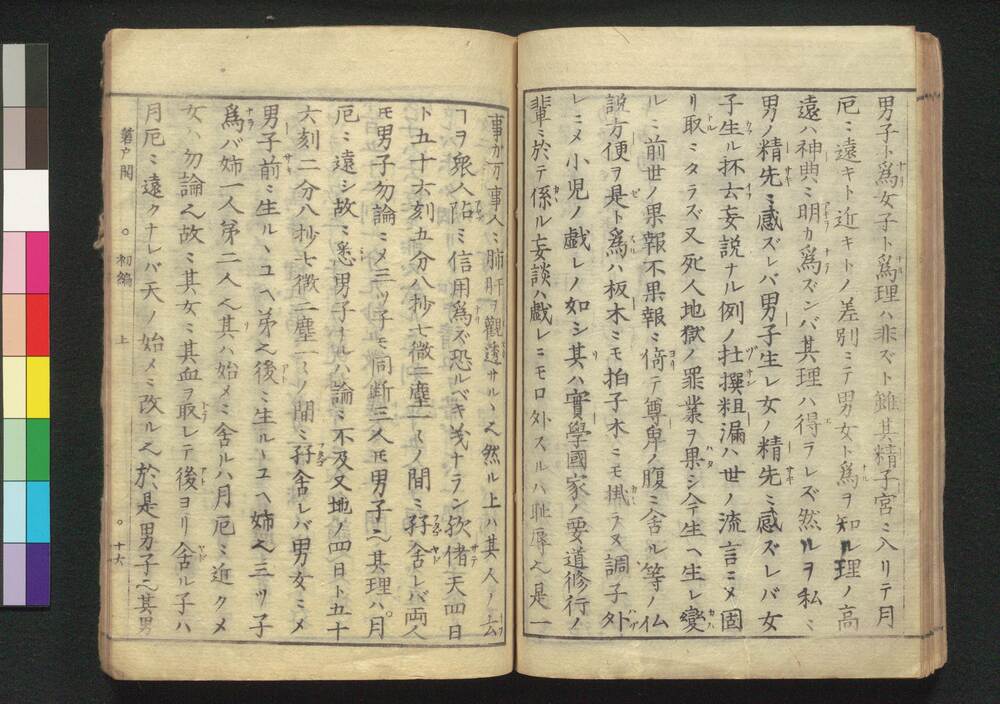 男子ト爲女子ト爲理ハ非ズト雖其精子宮ミ入リテ月
厄ミ遠キト近キトノ差別ミテ男女ト爲ヲ知ル理ノ高
遠ハ神典ミ明カ爲ズンバ其理ハ得ラレズ然ルヲ私ミ
男ノ精先ミ感ズレバ男子生レ女ノ精先ミ感ズレバ女
子生ル抔去妄説ナル例ノ杜撰粗漏ハ世ノ流言ミメ固
リ取ミタラズ又死人地獄ノ罪業ヲ果シ今生ヘ生レ變
ルミ前世ノ果報不果報ミ倚テ尊卑ノ腹ミ舎ル等ノ仏
説方便ヲ是ト爲ハ板木ミモ拍子木ミモ掛ラヌ調子外
レミメ小児ノ戯レノ如シ其ハ實學國家ノ要道修行ノ
輩ミ於テ係ル妄談ハ戯レミモロ外スルハ耻辱之是一
事カ万事人ミ肺肝ヲ觀透サルヽ之然ル上ハ其人ノ去
ヿヲ衆人陷ミ信用爲ズ恐ルベキ戈ナラン欤偖天四日
ト五十六刻五分八抄七微二塵一ミノ間ミ孖舎レバ両人
モ男子勿論ミメ三ツ子モ同断三人モ男子之其理ハ月
厄ミ遠シ故ミ悉男子ナルハ論ミ不及又地ノ四日ト五十
六刻二分八抄七微二塵一ミノ間ミ孖舎レバ男女ミメ
男子前ミ生ルヽユヘ弟之後ミ生ルヽユヘ姉之三ツ子
爲バ姉一人弟二人之其ハ始メミ舎ルハ月厄ミ近クメ
女ハ勿論之故ミ其女ミ其血ヲ取レテ後ヨリ舎ル子ハ
月厄ミ遠クナレバ天ノ始メミ改ル之於是男子之其男
初編
上
十六